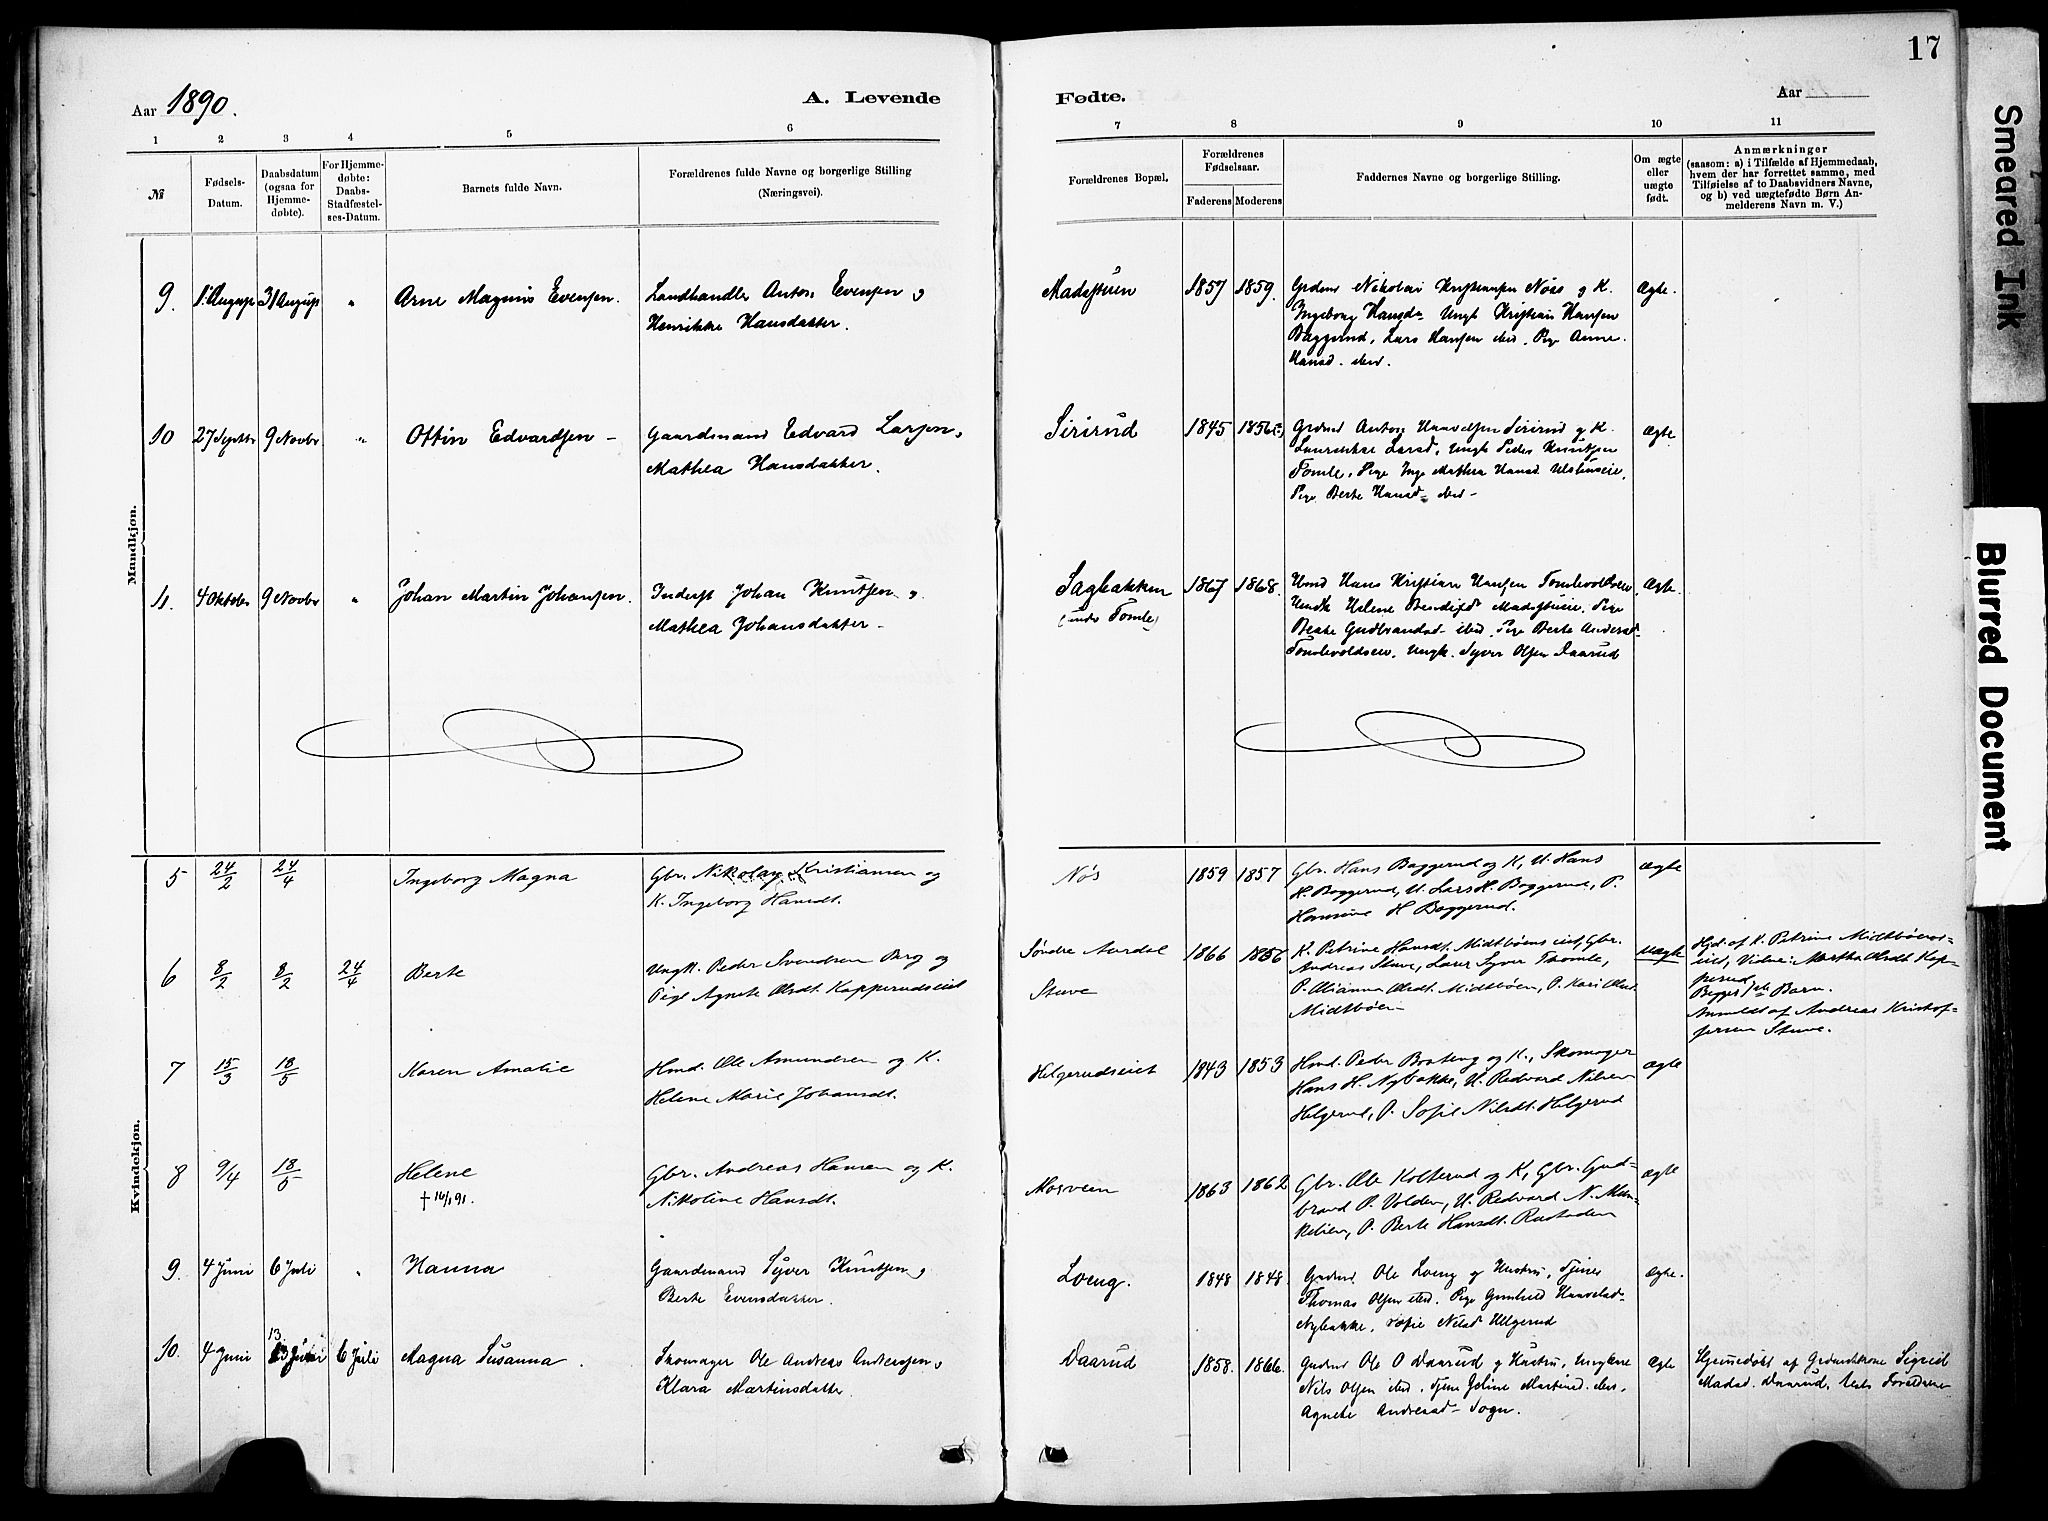 17
Aar 1890.
A. Levende
Fødte.
Aar
1 2 3 4 5 6 7 8 9 10 11
№
Fødsels-
Datum.
Daabsdatum
(ogsaa for
Hjemme-
døbte).
For Hjemme-
døbte:
Daabs-
Stadfæstel-
ses-Datum.
Barnets fulde Navn.
Forældrenes fulde Navne og borgerlige Stilling
(Næringsvei).
Forældrenes Bopæl.
Forældrenes
Fødselsaar.
Faderens Moderens
Faddernes Navne og borgerlige Stilling.
Om ægte
eller
uægte
født.
Anmærkninger
(saasom: a) i Tilfælde af Hjemmedaab,
hvem der har forrettet samme, med
Tilføielse af to Daabsvidners Navne,
og b) ved uægtefødte Børn An-
melderens Navn m. V.)
Mandkjøn.
9. 1 August 31 August " Arne Magnus Evensen. Landhandler Anton Evensen og
Henrikke Hansdatter.
Madsstuen 1857 1859. Grdmd Nikolai Kristiansen Nøss og K.
Ingeborg Hansd. Ungk Kristian Hansen
Baggerud, Lars Hansen ibid, Pige Anne
Hansd. ibid.
Ægte.
10 27 Septbr 9 Novbr " Ottin Edvardsen - Gaardmand Edvard Larsen,
Mathea Hansdatter.
Sirirud 1845 1856 Grdmd Anton Sirirud og K.
Larsd, Ungk Peder Knutsen
Tomle, Pige Inge Mathea Hansd
Pige Berte Hansd - ibid -
Ægte.
11. 4 Oktober 9 Novbr " Johan Martin Johansen. Inderst Johan Knutsen og
Mathea Johansdatter -
Sagbakken
(under Tomle)
1867 1868. Hmd Hans Kristian Hansen Tomlevoldseie,
Helene Madsstueie, Pige
Beate Gudbrandsd - ibid, Pige Berte Andersd -
Tomlevoldseie, Ungk. Syver Olsen Daarud
Ægte.
Kvindekjøn.
5 24/2 24/4 Ingeborg Magna Gbr. Nikolay Kristiansen og
K. Ingeborg Hansdt.
Nøs 1859 1857 Gbr. Hans Baggerud og K, U. Hans
H. Baggerud, U. Lars H. Baggerud, P.
Hansine H Baggerud.
ægte
6 8/2 8/2 24/4 Berte Ungk. Peder Svendsen Berg og
Pige Agnete Olsdt Kopperudseiet
Søndre Aurdal
Stuve
1866 1856 K. Petrine Hansdt. Midtbøenseiet, Gbr.
Andreas Stuve, Lærer Syver Thomle,
P. Oliana Olsdt. Midtbøen, P. Kari Olsdt.
Midtbøen
uægte
Hjd. af K. Petrine Midtbøens-
eiet, Vidne: Martha Olsdt Kop-
perud
Begges 1ste Barn.
Anmeldt af Andreas Kristof-
fersen Stuve.
7 15/3 18/5 Karen Amalie Hmd. Ole Amundsen og K.
Helene Marie Johansdt.
Helgerudseiet 1843 1853 Hmd. Peder Braateng og K., Skomager
Hans H. Nybakke, U. Redvard Nilsen
Helgerud, P. Sofie Nilsdt. Helgerud
ægte
8 9/4 18/5 Helene
† 16/1 91.
Gbr. Andreas Hansen og K.
Nikoline Hansdt.
Mosveen 1863 1862 Gbr. Ole Kolterud og K, Gbr. Gud-
brand P. Volden, U. Redvard N. Mun-
kelien, P. Berte Hansdt. Rustaden
ægte
9. 4 Juni 6 Juli " Hanna Gaardmand Syver Knutsen og
Berte Evensdatter.
Loeng. 1848 1848. Grdmd. Ole Loeng og Hustru, Tjener
Thomas Olsen ibid. Pige Gunhild
Nybakke, Sofie Nilsd Helgerud
Ægte.
10. 4 Juni 13. 13 Juni 6 Juli Magna Susanna. Skomager Ole Andreas Anderssen og
Klara Martinsdatter.
Daarud 1858. 1866. Grdmd Ole O Daarud og Hustru, Ungkarl
Nils Olsen ibid. Tjener Joline Martinsd. ibid.
Agnete Andersd - Sogn.
Ægte
Hjemmedøbt af Gaardmandskone Sigrid
Madsd. Daarud. Forældrene
Smeared Ink
Blurred Document